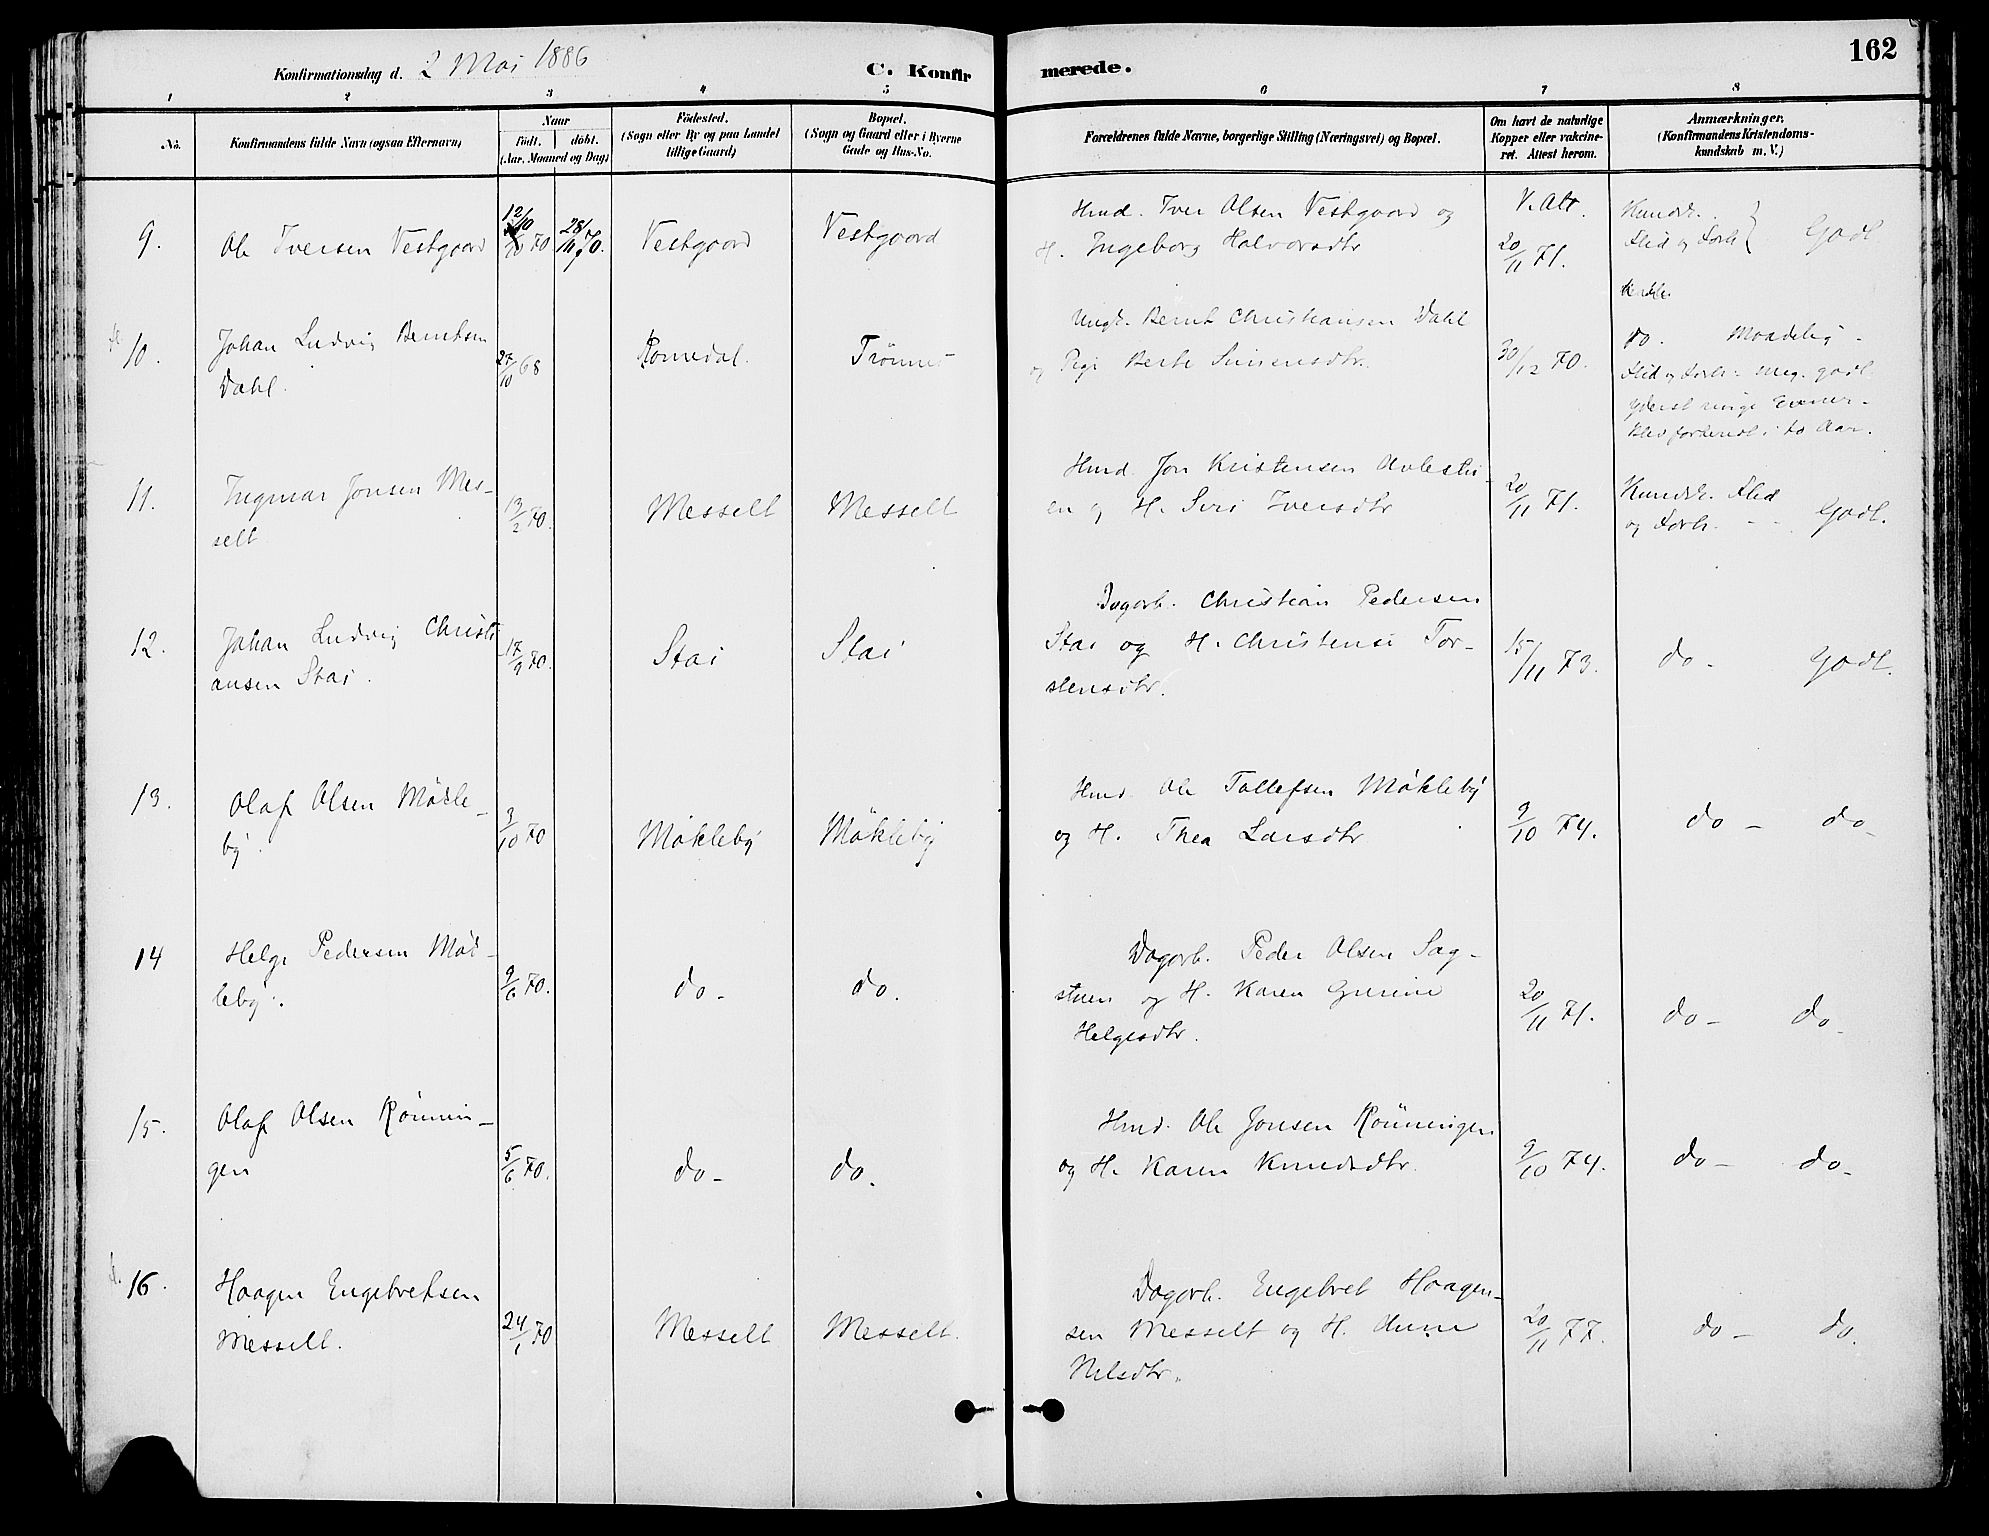 Konfirmationsdag d. 2 Mai 1886
C. Konfirmerede.
162
1 2 3 4 5 6 7 8
No.
Konfirmandens fulde Navn (ogsaa Efternavn)
Naar
födt. döbt.
(Aar, Maaned og Dag)
Födested.
(Sogn eller By og paa Landet
tillige Gaard)
Bopæl.
(Sogn og Gaard eller i Byerne
Gade og Hus-No.
Forældrenes fulde Navne, borgerlige Stilling (Næringsvei) og Bopæl.
Om havt de naturlige
Kopper eller vakcine-
ret. Attest herom.
Anmærkninger,
(Konfirmandens Kristendoms-
kundskab m. V.)
9. Ole Iversen Vestgaard 12/10 70 28/10 70. Vestgaard Vestgaard
Hmd. Iver Olsen Vestgaard og
H. Ingeborg Halvorsdtr
V. Att.
20/11 71.
Kundsk.
Flid og Forh. } Godt
10. Johan Ludvig Berntsen
Dahl.
27/10 68 Romedal. Trönnes
Ungk. Bernt Christiansen Dahl
og Pige Berte Simensdtr.
30/12 70.
Do. Maadelig.
Flid og Forh. meg. godt.
Yderst ringe Evner.
Blev forberedt i to Aar.
11. Ingmar Jonsen Mes-
selt
13/2 70. Messelt Messelt
Hmd. Jon Kristensen
en og H. Siri Iversdtr
20/11 71.
Kundsk. Flid
og Forh. - - Godt.
12. Johan Ludvig Christi
ansen Stai.
17/9 70. Stai Stai
Dagarb. Christian Pedersen
Stai og H. Christense Tor-
stensdtr.
15/11 73. do - Godt.
13. Olaf Olsen Mökle-
by.
3/10 70 Mökleby Mökleby
Hmd. Ole Tollefsen Mökleby
og H. Thea Larsdtr
9/10 74. do - do -
14 Helge Pedersen Mök-
leby.
9/6 70. do - do.
Dagarb. Peder Olsen Sag-
stuen og H. Karen Gurine
Helgesdtr.
20/11 71. do - do -
15. Olaf Olsen Rönnin-
gen
5/6 70. do - do.
Hmd. Ole Jonsen Rönningen
og H. Karen Knudsdtr.
9/10 74. do - do -
16. Haagen Engebretsen
Messelt.
24/1 70 Messelt Messelt.
Dagarb. Engebret Haagen-
sen Messelt og H. Anne
Nilsdtr.
20/11 77. do - do.